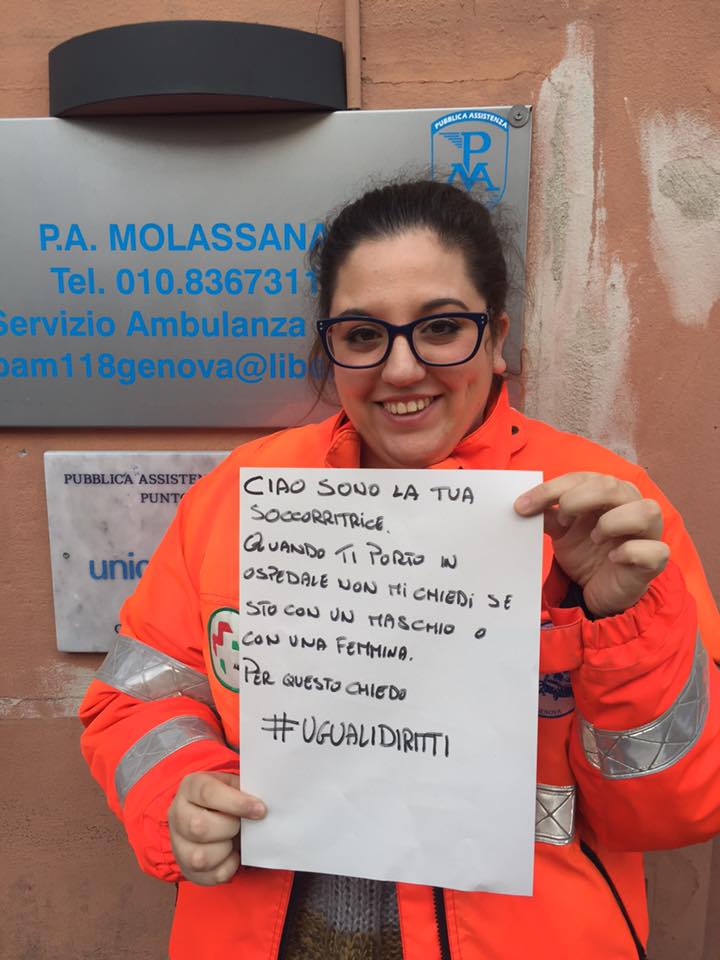 PUBBLICA ASSISTENZA
P.A. MOLASSANA
Tel. 010.8367311
Servizio Ambulanza
pam118genova@libe
PUBBLICA ASSISTEN
PUNTO
unic
CIAO SONO LA TUA
SOCCORRITRICE.
QUANDO TI PORTO IN
OSPEDALE NON MI CHIEDI SE
STO CON UN MASCHIO O
CON UNA FEMMINA.
PER QUESTO CHIEDO
#UGUALIDIRITTI